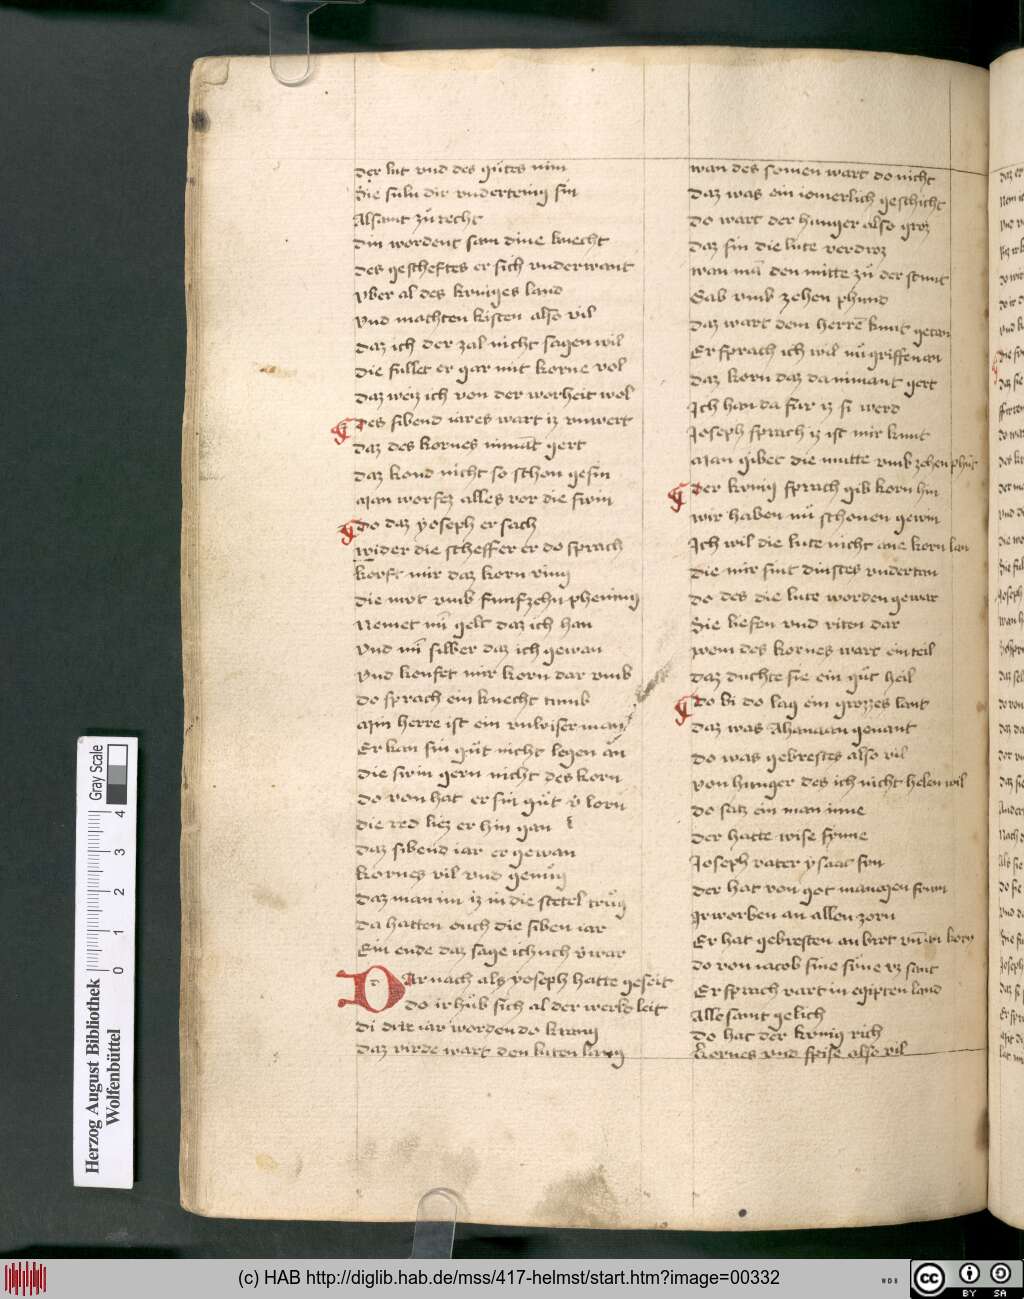 der lut vnd des gůtes nim
Sie suln dir vndertenig sin
Alsamt zů recht
din wordent sam dine knecht
des gescheftes er sich vnderwant
vber al des kuniges land
vnd machten kisten also vil
daz ich der zal nicht sagen wil
die fullet er gar mit korne vol
daz weiz ich von der worheit wol
des sibend iares wart iz vnwert
daz des kornes niman̄t gert
daz kond nicht so schon gesin
Man worfez alles vor die swin
do daz yoseph er sach
wider die scheffer er do sprach
korft mir daz korn ring
die mvt vmb funfzehn phennig
Nemet mī gelt daz ich han
vnd mī silber daz ich gewan
vnd keufet mir korn dar vmb
do sprach ein knecht tumb
Min herre ist ein vnwiser man
Er kan sin gůt nicht legen an
die swin gern nicht des korn
do von hat er sin gůt v̄lorn
die red liez er hin gan
daz sibend iar er gewan
kornes vil vnd genůg
daz man im iz in die stetel trůg
da hatten ouch die siben iar
Ein ende daz sage ich uch v̄war
DAr nach als yoseph hatte geseit
do irhůb sich al der werlds leit
di dur iar worden do kunig
daz virde wart den luten lang
wan des somen wart do nicht
daz was ein iomerlich geschicht
do wart der hunger also groz
daz sin die lute verdroz
wan mā den mutte zů der stunt
Gab vmb zehen phund
daz wart dem herrē kunt getan
Er sprach ich wil nů griffen an
daz korn daz da nimant gert
Ich han da fur iz si werd
Joseph sprach iz ist mir kunt
Man gibet die mutte vmb zehen phūt
der kvnig sprach gib korn hin
wir haben nů schonen gewin
Ich wil die lute nicht ane korn lan
die mir sint dinstes vndertan
do des die lute worden gewar
Sie liefen vnd riten dar
wem des kornes wart ein teil
daz duchte sie ein gůt heil
do bi do lag ein grozzes lant
daz was Ahanaan genant
do was gebrestes also vil
von hunger des ich nicht helen wil
do saz ein man inne
der hatte wise synne
Joseph vater ysaac svn
der hat von got manigen frvm
Irworben an allen zorn
Er hat gebresten an brot vn̄ an korn
do von iacob sine sůne vz sant
Er sprach vart in egipten land
Alle samt gelich
do hat der kvnig rich
kornes vnd speise also vil
Herzog August Bibliothek
Wolfenbüttel
0 1 2 3 4
Gray Scale
(c) HAB http://diglib.hab.de/mss/417-helmst/start.htm?image=00332
WDB
cc BY SA